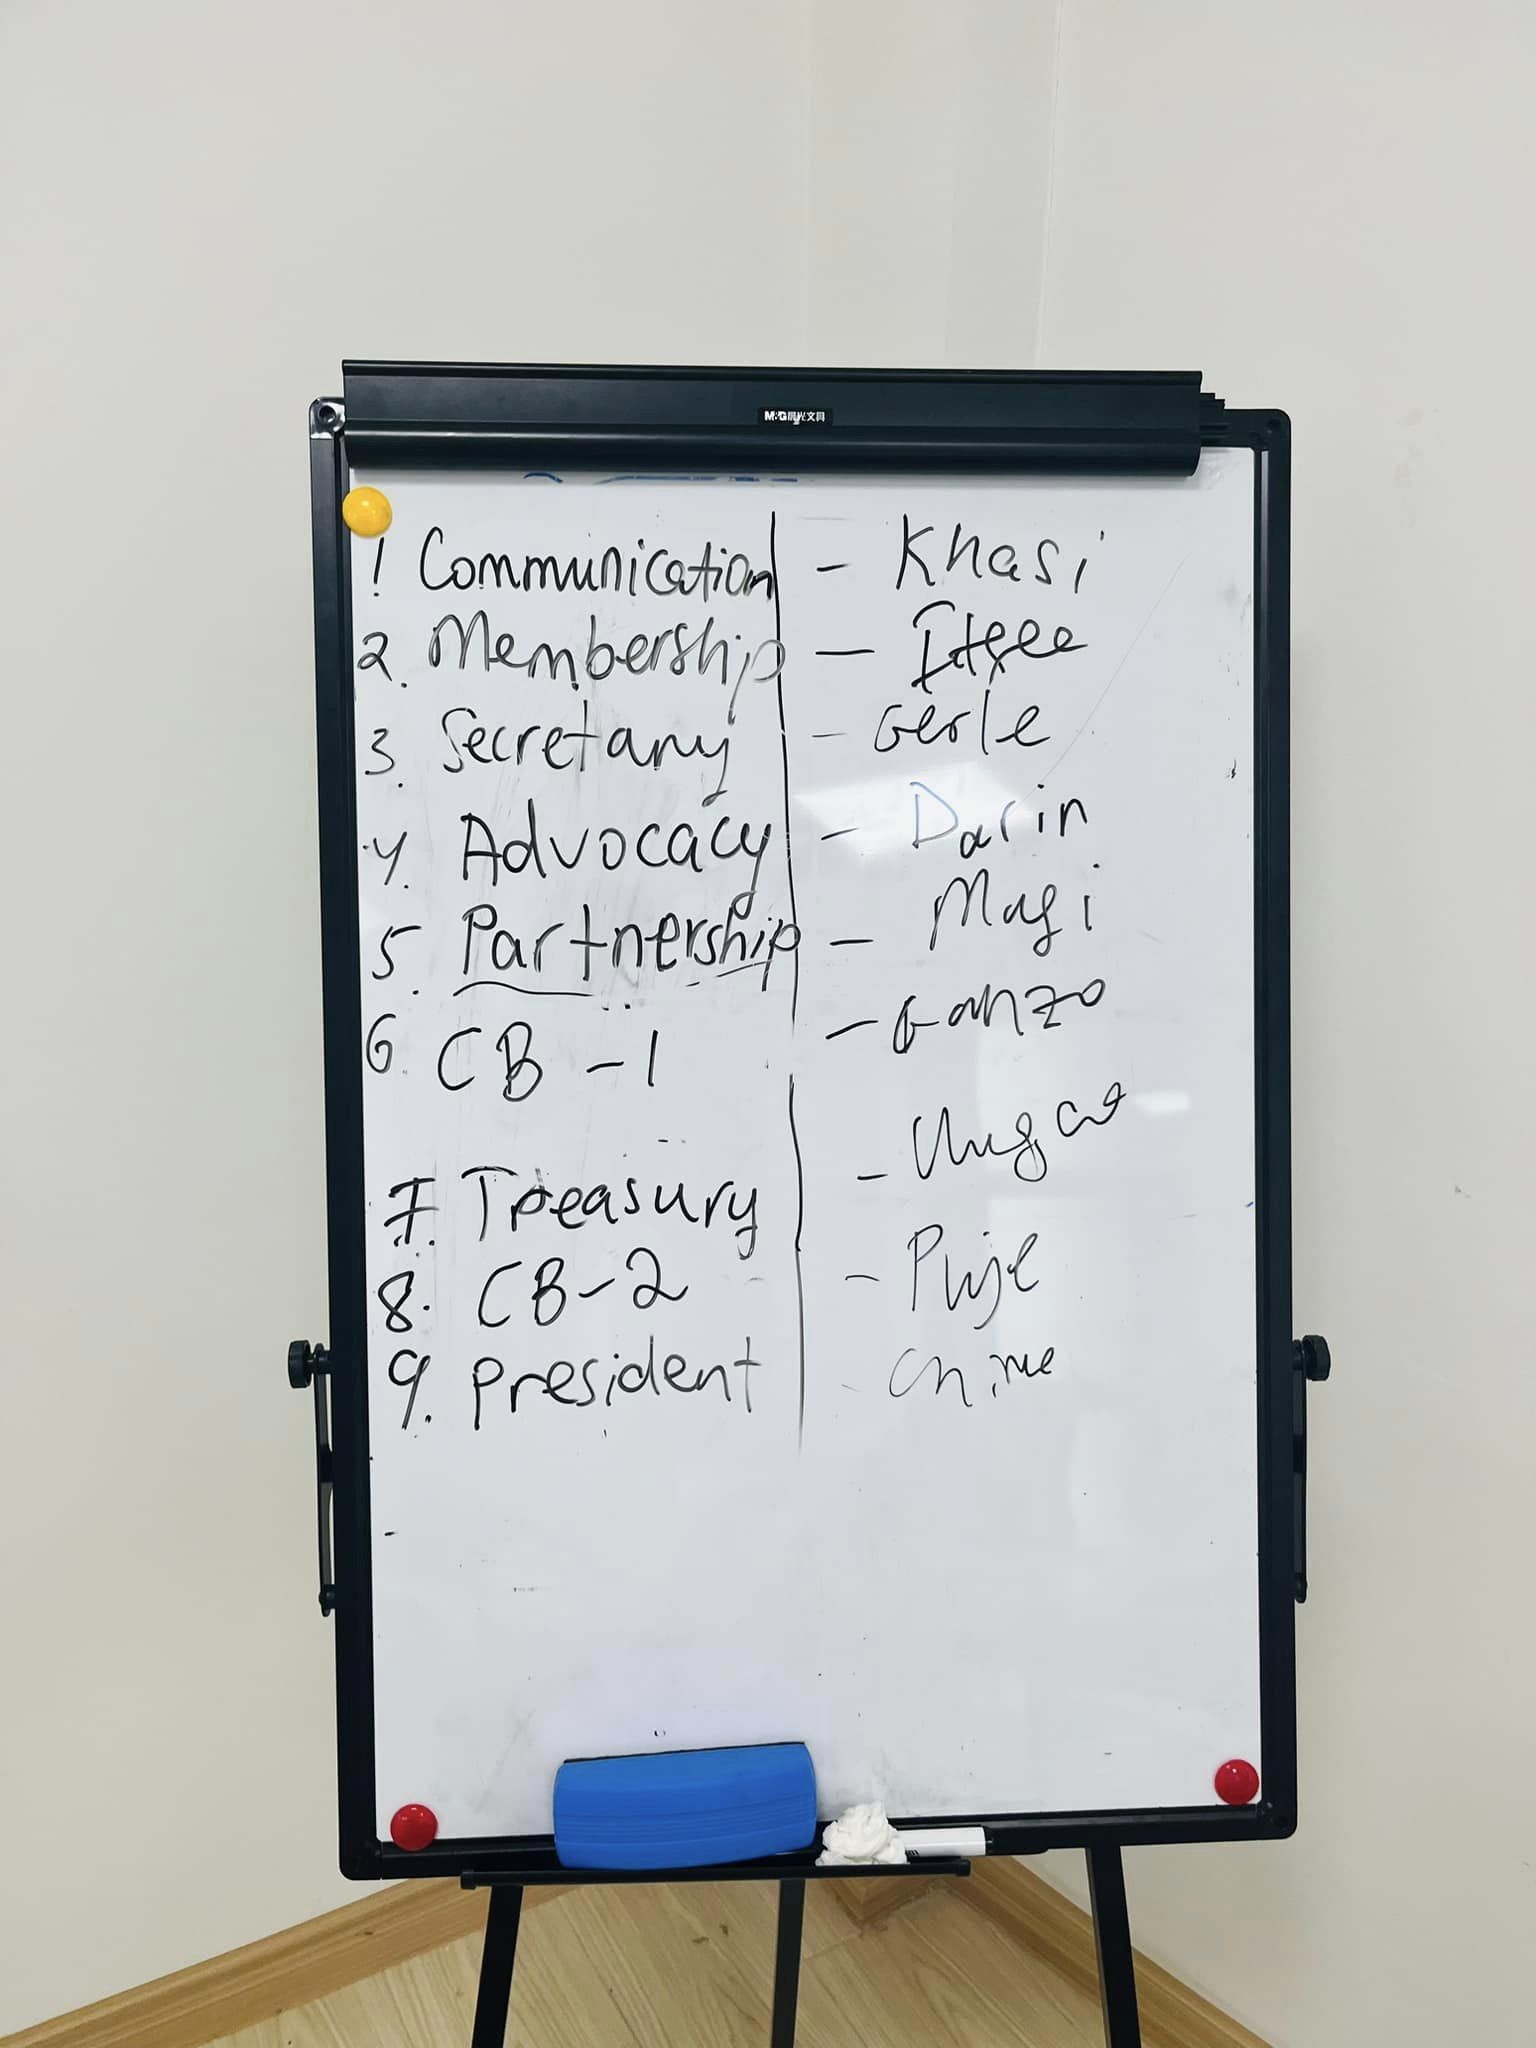 M&G晨光文具
1 Communication - Khasi
2. Membership -
3. Secretary - Gerle
4. Advocacy - Darin
5. Partnership - Magi
6. CB - 1 - Ganzo
7. Treasury -
8. CB - 2 - Puje
9. President - Chime